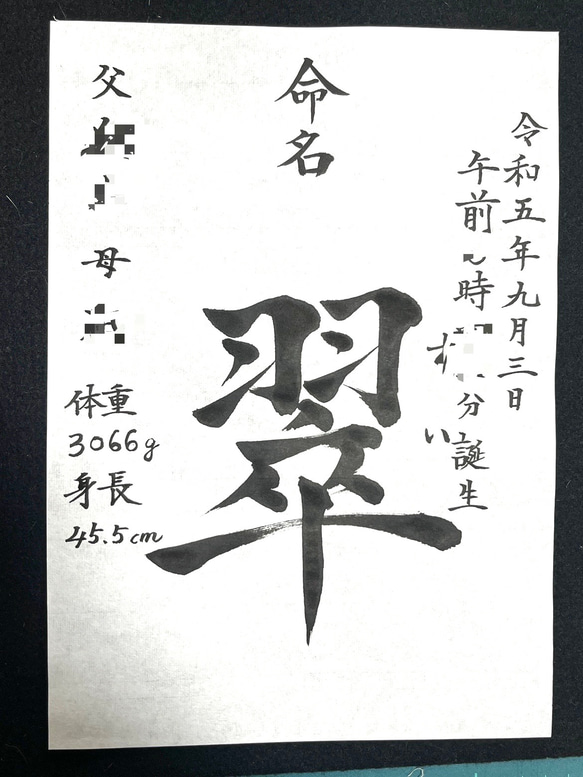 令和五年九月三日
午前 時 分誕生
命名
翠
父
母
体重
3066g
身長
45.5cm